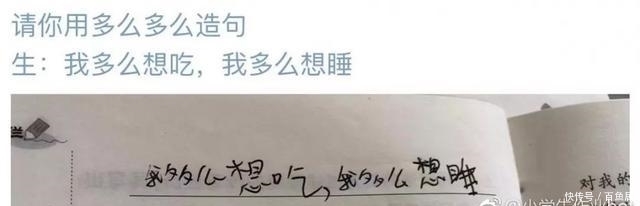 请你用多么多么造句
生：我多么想吃，我多么想睡
兰
我多么想吃，我多么想睡
对我的
快传号 / 百鱼